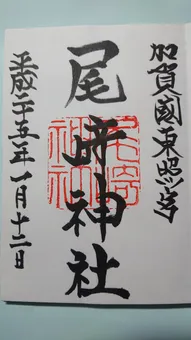 加賀國東照宮
尾﨑神社
尾﨑神社
平成二十五年一月十二日